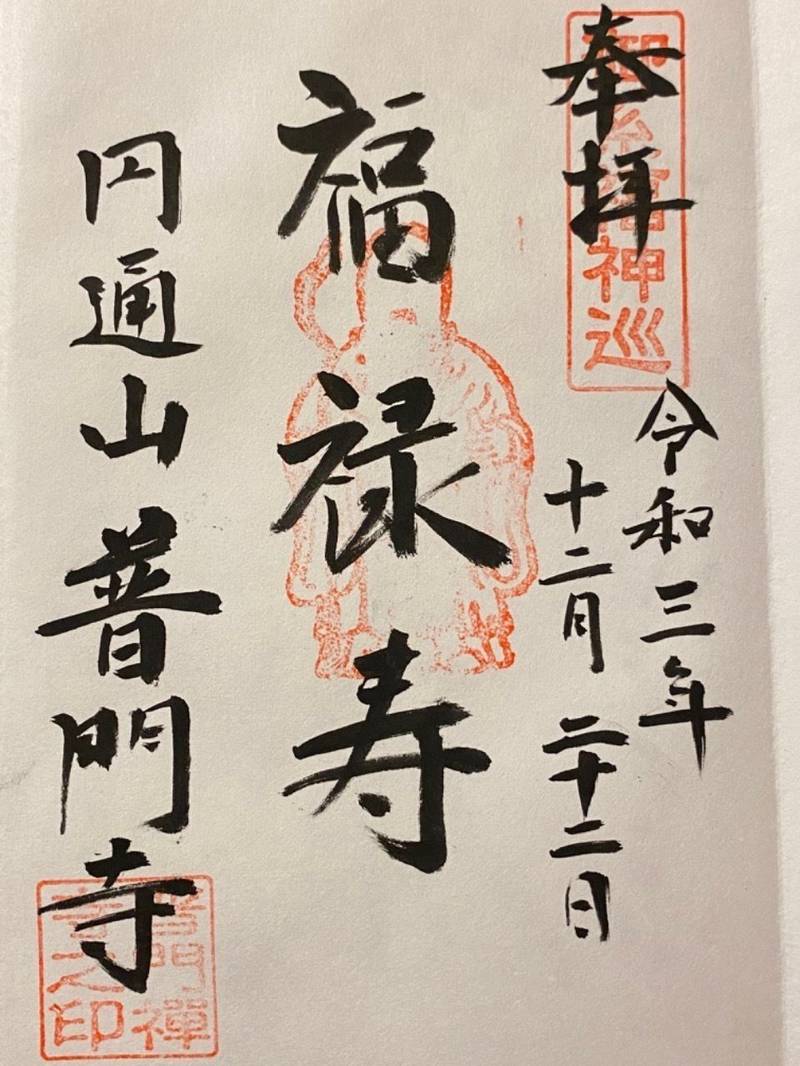 奉拝
令和三年
十二月二十二日
福禄寿
円通山普門寺
普門禅
寺之印